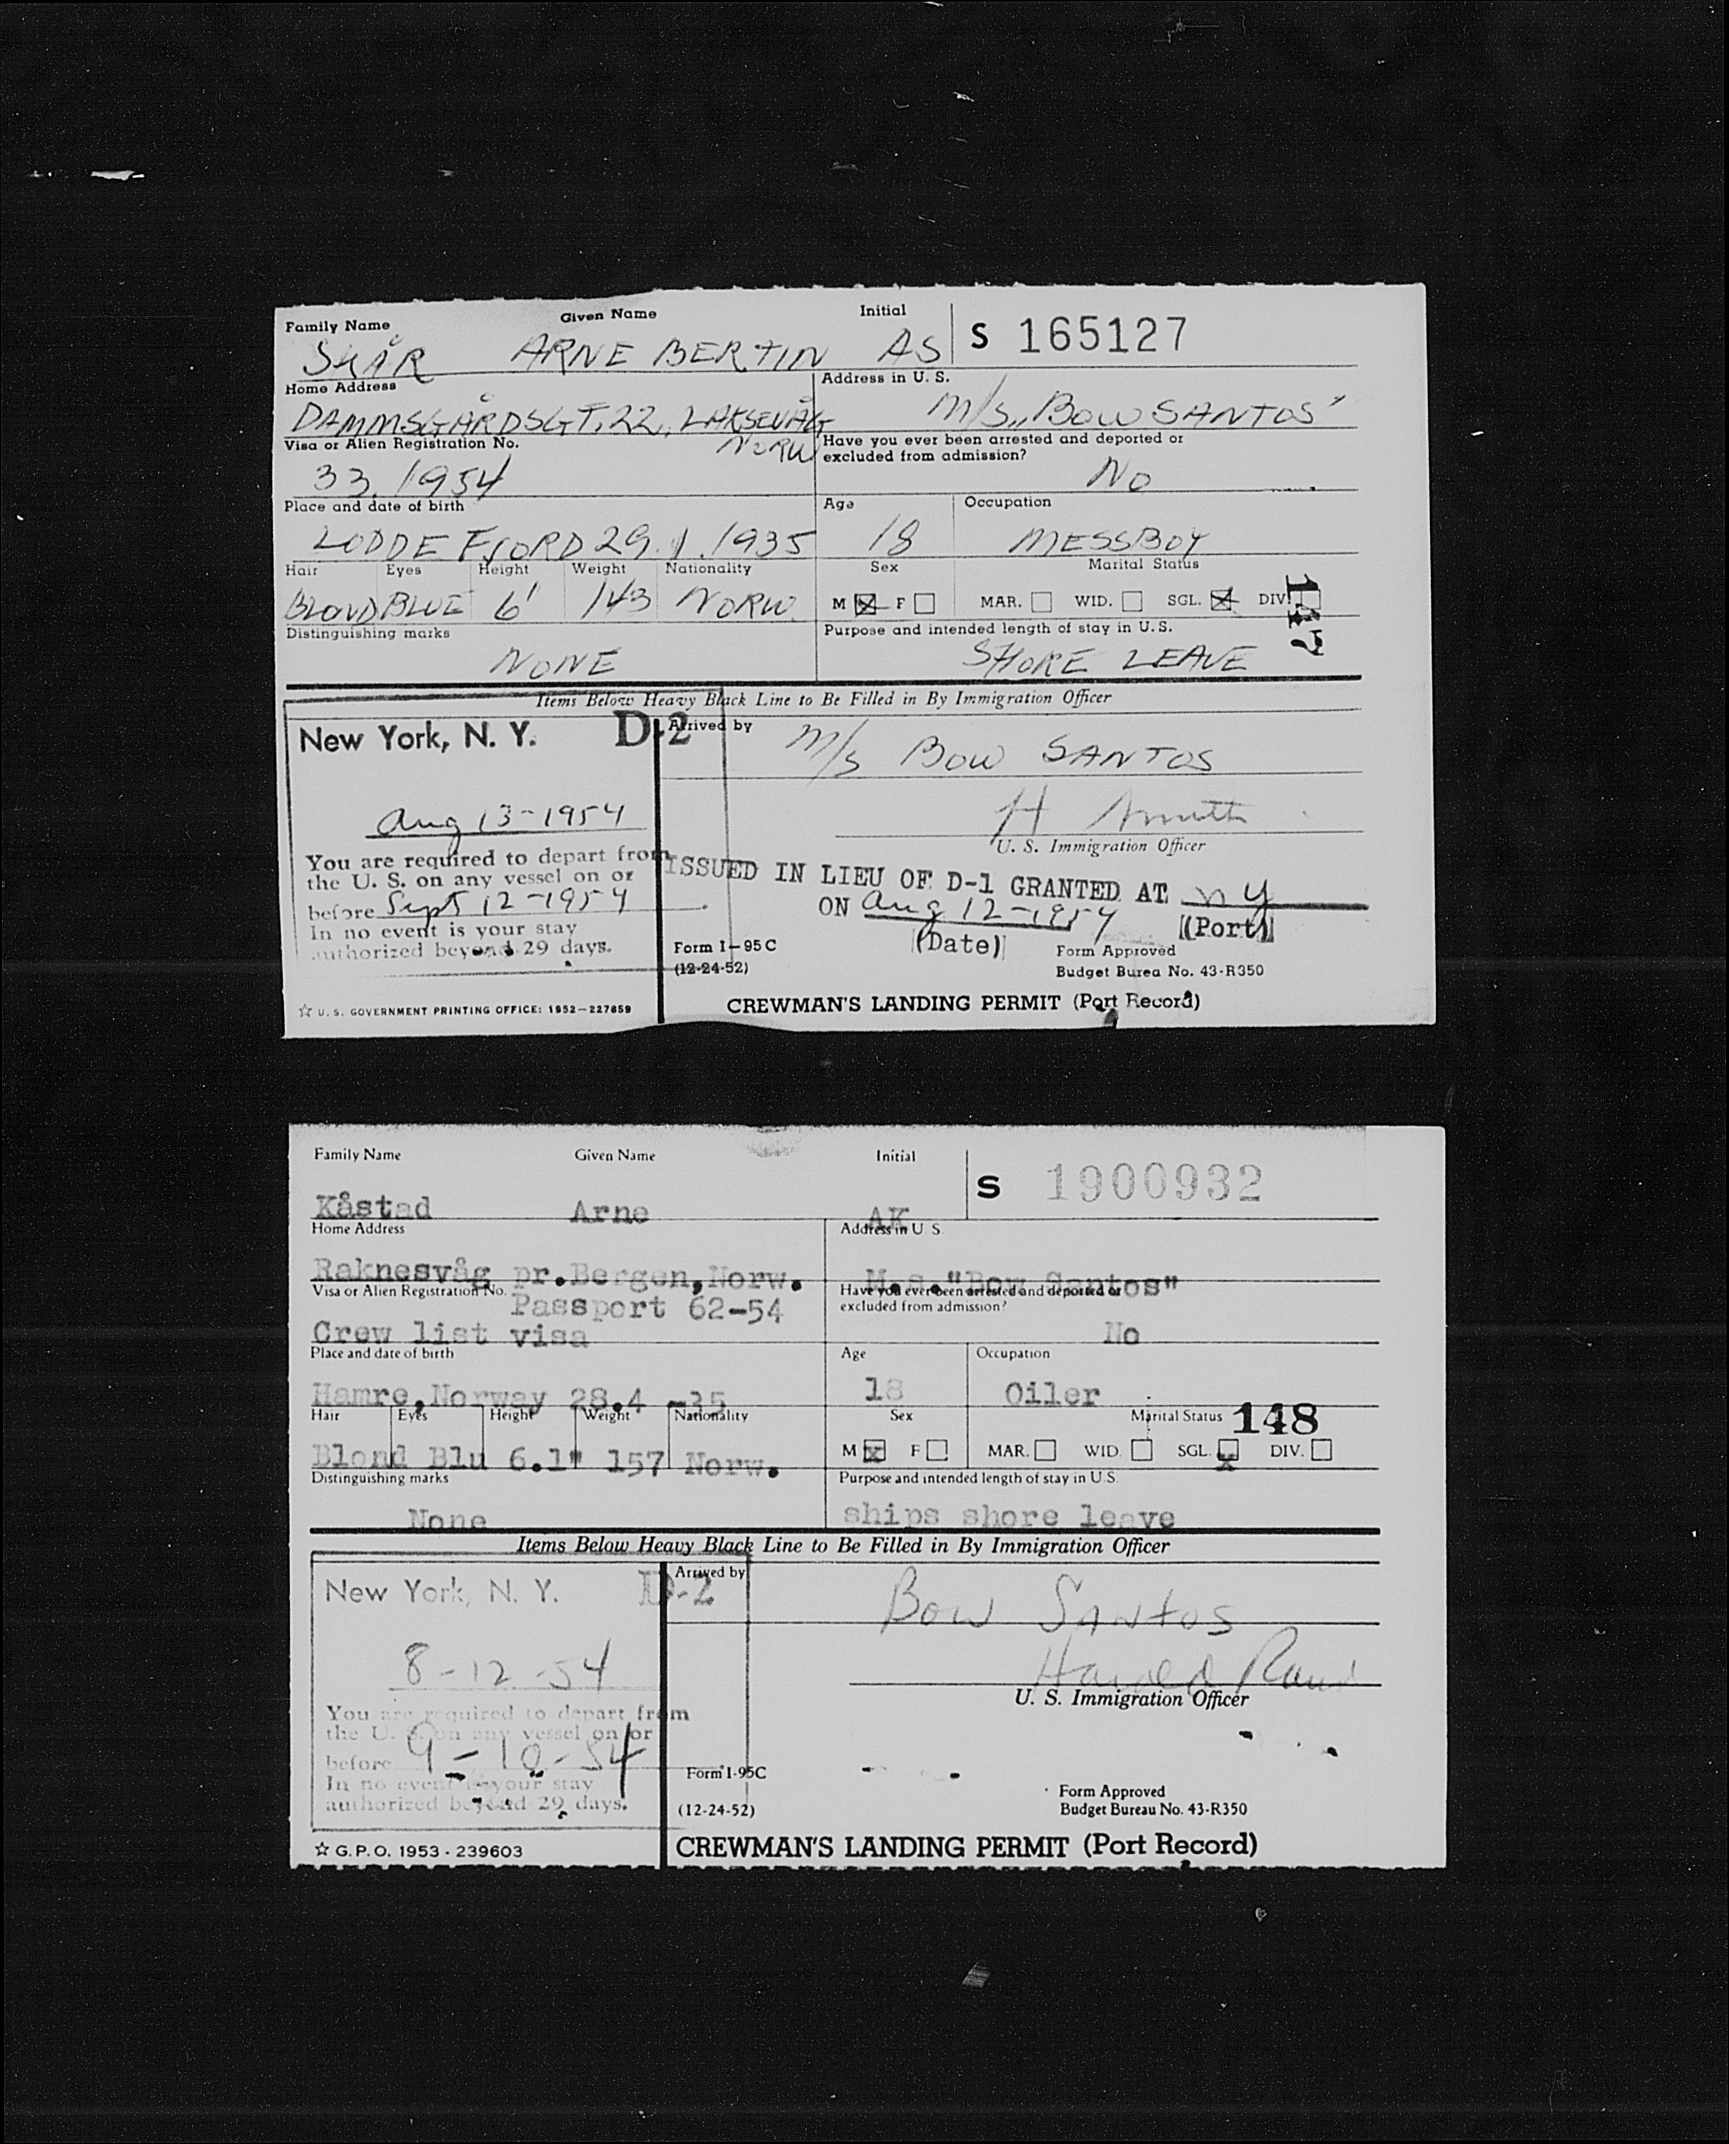 Family Name Given Name Initial S 165127
SKÅR ARNE BERTIN AS
Home Address Address in U. S.
DAMMSGÅRDSGT. 22, LAKSEVÅG M/S „BOW SANTOS"
NORW
Visa or Alien Registration No. Have you ever been arrested and deported or
excluded from admission?
33. 1954 NO
Place and date of birth Age Occupation
LODDEFJORD 29.1.1935 18 MESSBOY
Hair Eyes Height Weight Nationality Sex Marital Status
BLOND BLUE 6' 143 NORW. M F MAR. WID. SGL. DIV.
147
Distinguishing marks Purpose and intended length of stay in U.S.
NONE SHORE LEAVE
Items Below Heavy Black Line to Be Filled in By Immigration Officer
New York, N. Y. D-2 Arrived by M/S BOW SANTOS
Aug 13-1954
U. S. Immigration Officer
You are required to depart from
the U. S. on any vessel on or
before Sept 12-1954
In no event is your stay
authorized beyond 29 days.
ISSUED IN LIEU OF D-1 GRANTED AT NY
ON Aug 12-1954 (Port)
(Date)
Form I-95C Form Approved
(12-24-52) Budget Burea No. 43-R350
☆ U. S. GOVERNMENT PRINTING OFFICE: 1952—227859 CREWMAN'S LANDING PERMIT (Port Record)
Family Name Given Name Initial S 1900932
Kåstad Arne AK
Home Address Address in U. S.
Raknesvåg pr.Bergen,Norw. M.s."Bow Santos"
Visa or Alien Registration No. Have you ever been arrested and deported or
Passport 62-54 excluded from admission?
Crew list visa No
Place and date of birth Age Occupation
Hamre,Norway 28.4 -35 18 Oiler
Hair Eyes Height Weight Nationality Sex Marital Status 148
Blond Blu 6.1" 157 Norw. M x F MAR. WID. SGL. x DIV.
Distinguishing marks Purpose and intended length of stay in U.S.
None ships shore leave
Items Below Heavy Black Line to Be Filled in By Immigration Officer
New York, N. Y. D-2 Arrived by Bow Santos
8-12-54 Harold
U. S. Immigration Officer
You are required to depart from
the U. S. on any vessel on or
before 9-10-54
In no event is your stay
authorized beyond 29 days.
Form I-95C Form Approved
(12-24-52) Budget Bureau No. 43-R350
☆ G.P.O. 1953 - 239603 CREWMAN'S LANDING PERMIT (Port Record)